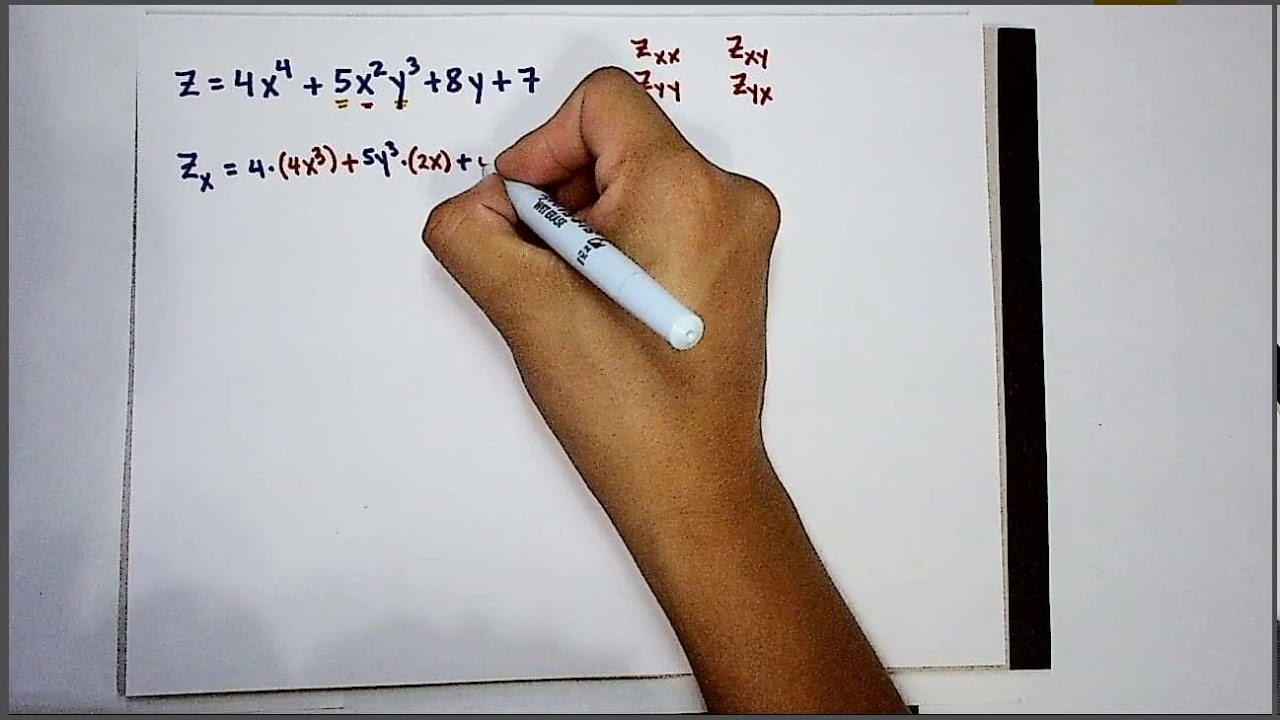 z = 4x⁴ + 5x²y³ + 8y + 7
z_xx z_xy
z_yy z_yx
z_x = 4·(4x³) + 5y³·(2x) +
WET ERASE